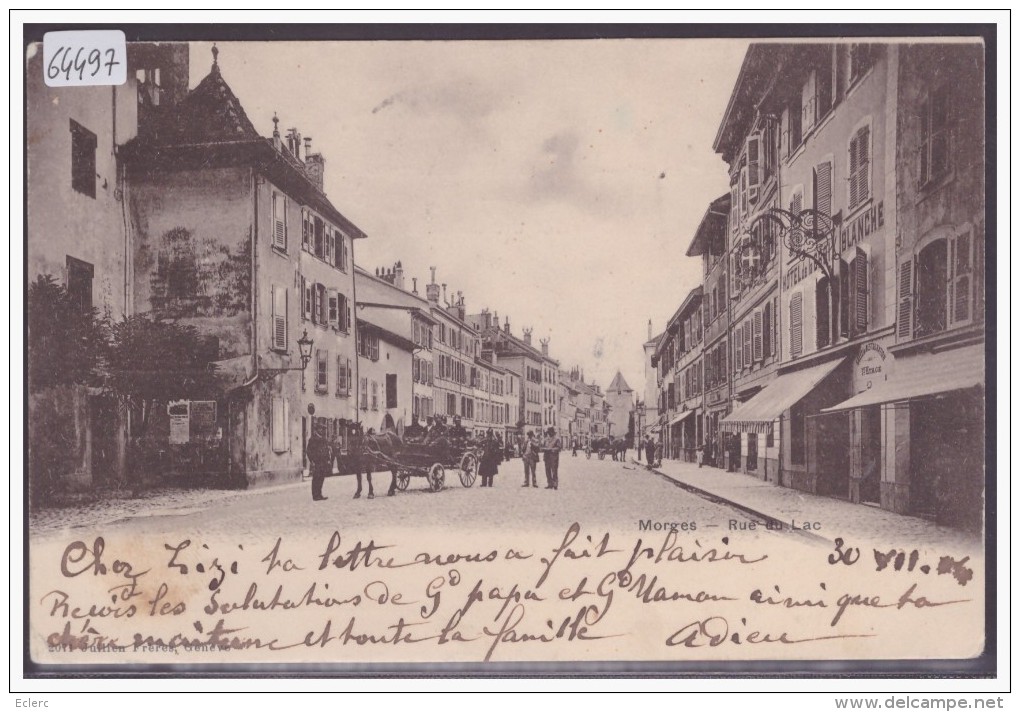 64497
HÔTEL DE LA BLANCHE
Morges — Rue du Lac
Cher Lizi ta lettre nous a fait plaisir 30 VII. 04
Reçois les Salutations de Gd papa et Gd Maman ainsi que ta
chère et toute la famille Adieu
2071 Jullien Frères, Genève
Eclerc
www.delcampe.net